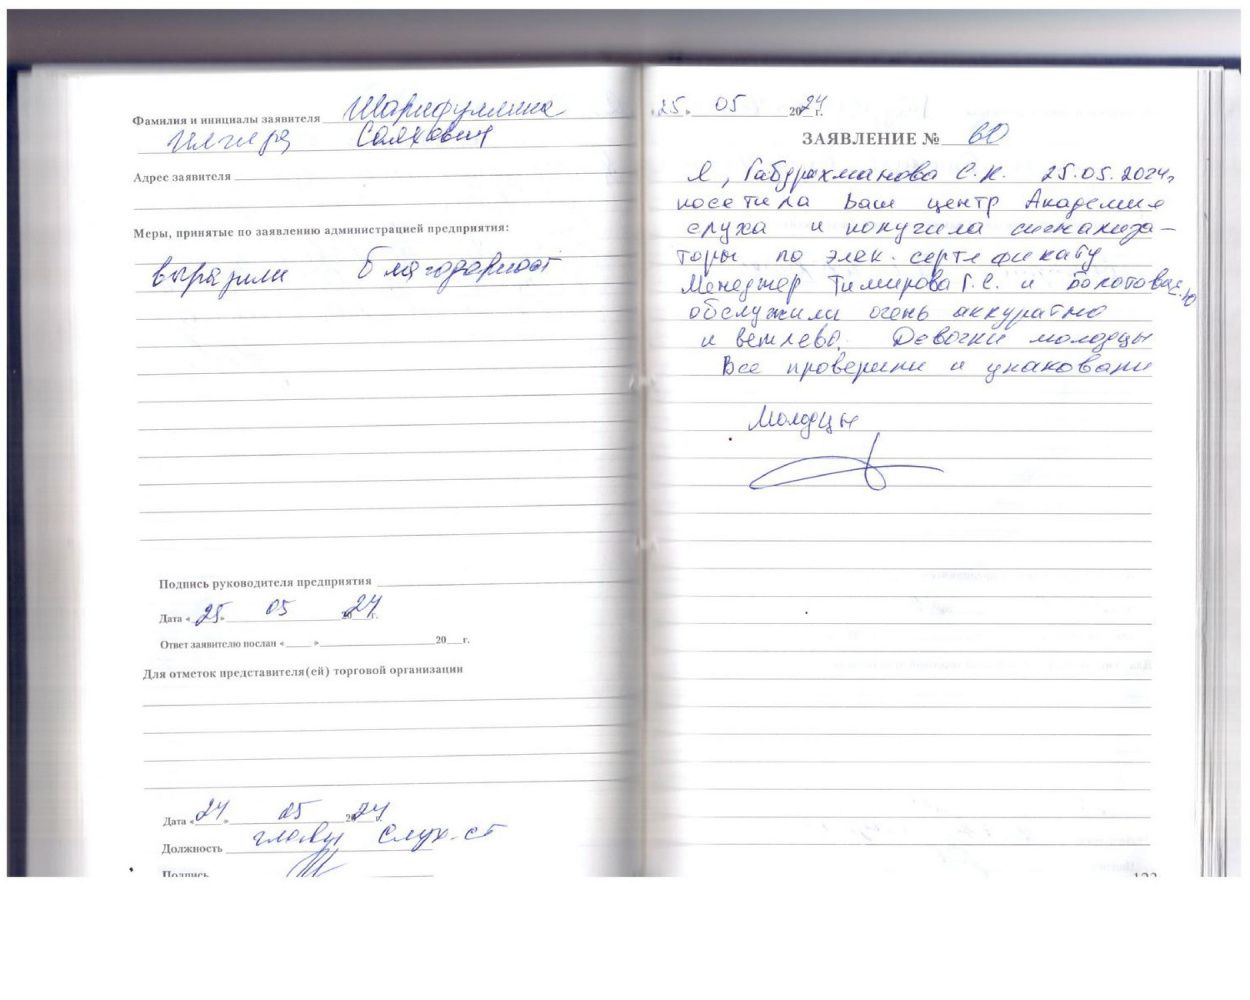 Фамилия и инициалы заявителя Шарифуллина
Илгиза Салхович
Адрес заявителя
Меры, принятые по заявлению администрацией предприятия:
выразили благодарност
Подпись руководителя предприятия
Дата «25» 05 2024 г.
Ответ заявителю послан «____» 20__ г.
Для отметок представителя(ей) торговой организации
Дата «24» 05 2024 г.
Должность слух. ст
Подпись
25» 05 2024 г.
ЗАЯВЛЕНИЕ № 60
Я, Габдрахманова С.К. 25.05.2024г
посетила Ваш центр Академия
слуха и получила сигнализа-
торы по элек. сертификату
Менеджер Тимирова Г.С. и Болотова Е.Ю
обслужили очень аккуратно
и вежлево. Девочки молодцы
Все проверили и упаковали
Молодцы